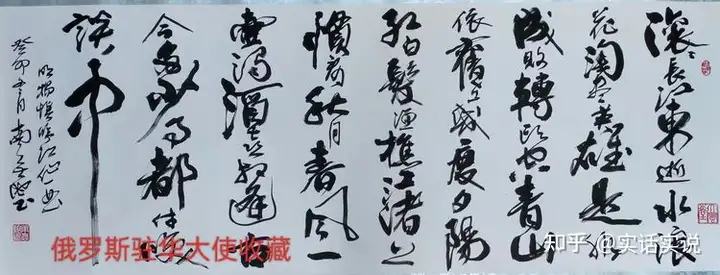 滚滚长江東逝水浪
花淘尽英雄是非
成败轉头空青山
依舊在几度夕陽
红白髮渔樵江渚上
惯看秋月春风一
壶浊酒喜相逢古
今多少事都付笑
談中
明杨慎临江仙
癸卯
俄罗斯驻华大使收藏
知乎 @实话实说